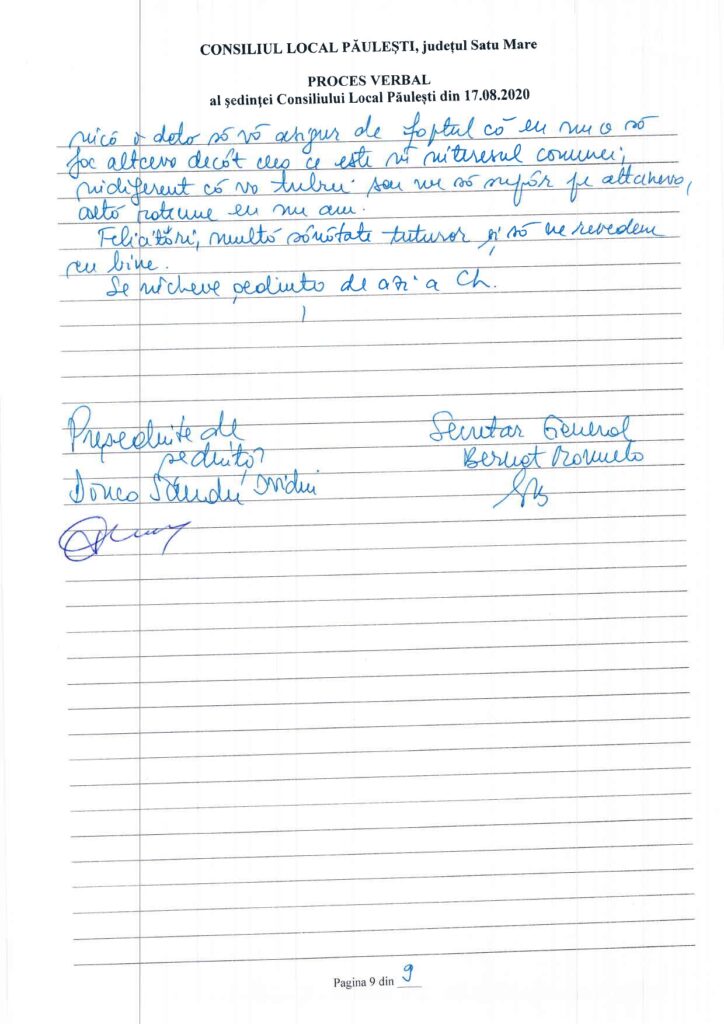 CONSILIUL LOCAL PĂULEȘTI, județul Satu Mare
PROCES VERBAL
al ședinței Consiliului Local Păulești din 17.08.2020
nică o dată, să vă asigur de faptul că eu nu o să
fac altceva decât ceea ce este în interesul comunei,
indiferent că va trebui sau nu să supăr pe altcineva,
altă rațiune eu nu am.
Felicitări, multă sănătate tuturor și să ne revedem
cu bine.
Se încheie ședința de azi a CL.
Președinte de
ședință,
Secretar General
Donca Sandu Ovidiu
Pagina 9 din 9